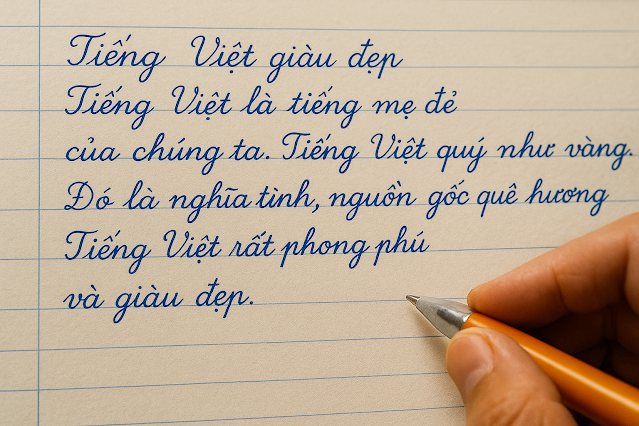 Tiếng Việt giàu đẹp
Tiếng Việt là tiếng mẹ đẻ
của chúng ta. Tiếng Việt quý như vàng.
Đó là nghĩa tình, nguồn gốc quê hương
Tiếng Việt rất phong phú
và giàu đẹp.